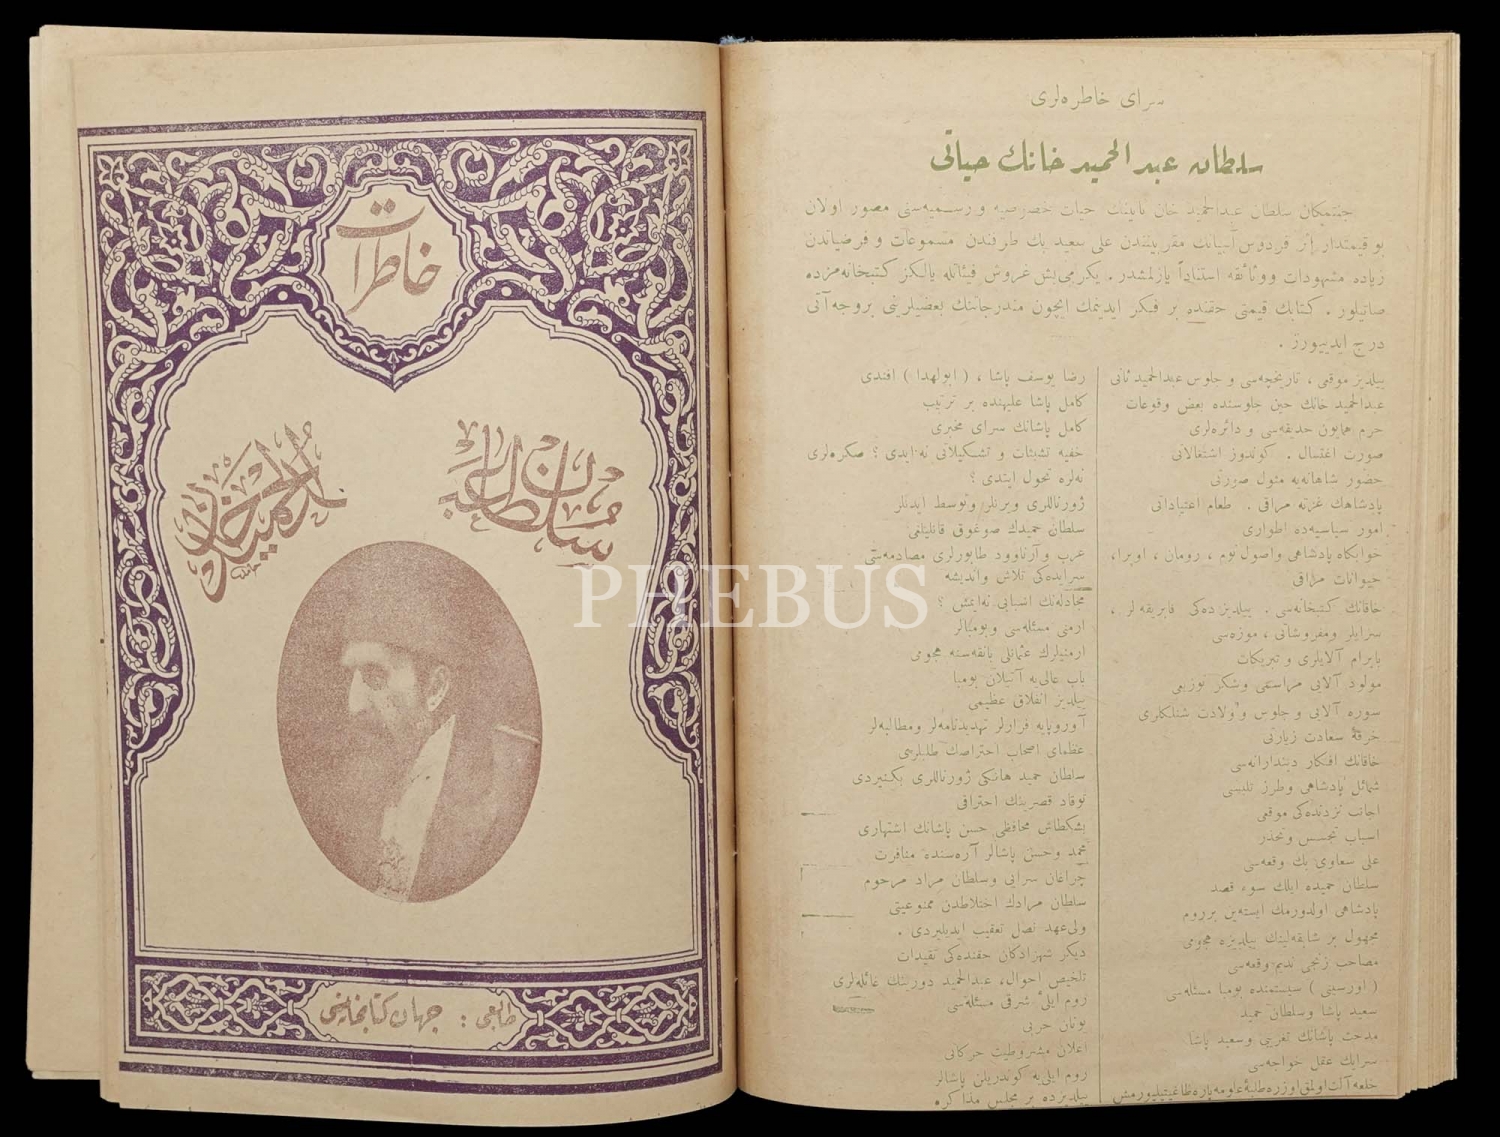 خاطرات
سلطان عبد
الحمید خان
طابعی : جهان کتابخانه‌سی
PHEBUS
سرای خاطره‌لری
سلطان عبد الحمید خانك حیاتی
جنتمکان سلطان عبدالحمید خان ثانینك حیات خصوصیه و رسمیه‌سنی مصور اولان
بو قیمتدار اثر فردوس آشیانك مقربیندن علی سعید بك طرفندن مسموعات و فرضیاتدن
زیاده مشهودات ووثائقه استناداً یازلمشدر . یکرمی بش غروش فیئاتله یالکز کتبخانه‌مزده
صاتیلور . کتابك قیمتی حقنده بر فکر ایدینمك ایچون مندرجاتنك بعضیلرینی بروجه آتی
درج ایدییورز .
ییلدیز موقعی ، تاریخچه‌سی و جلوس عبدالحمید ثانی
عبدالحمید خانك حین جلوسنده بعض وقوعات
حرم همایون حدیقه‌سی و دائره‌لری
صورت اغتسال . کوندوز اشتغالاتی
حضور شاهانه‌یه مثول صورتی
پادشاهك غزته مراقی . طعام اعتیاداتی
امور سیاسیه‌ده اطواری
خوابگاه پادشاهی واصول نوم ، رومان ، اوپرا ،
حیوانات مراقی
خاقانك کتبخانه‌سی . ییلدیزده‌کی فابریقه لر ،
سرایلر ومفروشاتی ، موزه‌سی
بایرام آلایلری و تبریکات
مولود آلایی مراسمی وشکر توزیعی
سوره آلایی و جلوس و ولادت شنلکلری
خرقهٔ سعادت زیارتی
خاقانك افکار دیندارانه‌سی
شمائل پادشاهی وطرز تلبسی
اجانب نزدنده‌کی موقعی
اسباب تجسس وتحذر
علی سعاوی بك وقعه‌سی
سلطان حمیده ایلك سوء قصد
پادشاهی اولدورمك ایسته‌ین بروم
مجهول بر شابقه‌لینك ییلدیزه هجومی
مصاحب زنجی ندیم وقعه‌سی
( اورسینی ) سیستمنده بومبا مسئله‌سی
سعید پاشا وسلطان حمید
مدحت پاشانك تغریبی وسعید پاشا
سرایك عقل خواجه‌سی
رضا یوسف پاشا ، ( ابولهدا ) افندی
کامل پاشا علیهنده بر ترتیب
کامل پاشانك سرای مخبری
خفیه تشبثات و تشکیلاتی نه ایدی ؟ صکره‌لری
نه‌لره تحول ایتدی ؟
ژورناللری ویرنلر وتوسط ایدنلر
سلطان حمیدك صوغوق قانلیلغی
عرب و آرناوود طابورلری مصادمه‌سی
سرایده‌کی تلاش واندیشه
مجادله‌نك اسبابی نه‌ایمش ؟
ارمنی مسئله‌سی وبومبالر
ارمنیلرك عثمانلی بانقه‌سنه هجومی
باب عالی‌یه آتیلان بومبا
ییلدیز انفلاق عظیمی
آوروپایه فرارلر تهدیدنامه‌لر ومطالبه‌لر
عظمای اصحاب احتراصك طلبلری
سلطان حمید هانکی ژورناللری بکنیردی
توقاد قصرینك احتراقی
بشکطاش محافظی حسن پاشانك اشتهاری
محمد وحسن پاشالر آره‌سنده منافرت
چراغان سرایی وسلطان مراد مرحوم
سلطان مرادك اختلاطدن ممنوعیتی
ولی‌عهد نصل تعقیب ایدیلیردی .
دیکر شهزادکان حقنده‌کی تقیدات
تلخیص احوالء عبدالحمید دورینك غائله‌لری
روم ایلیٔ شرقی مسئله‌سی
یونان حربی
اعلان مشروطیت حرکاتی
روم ایلی‌یه کوندریلن پاشالر
ییلدیزده بر مجلس مذاکره